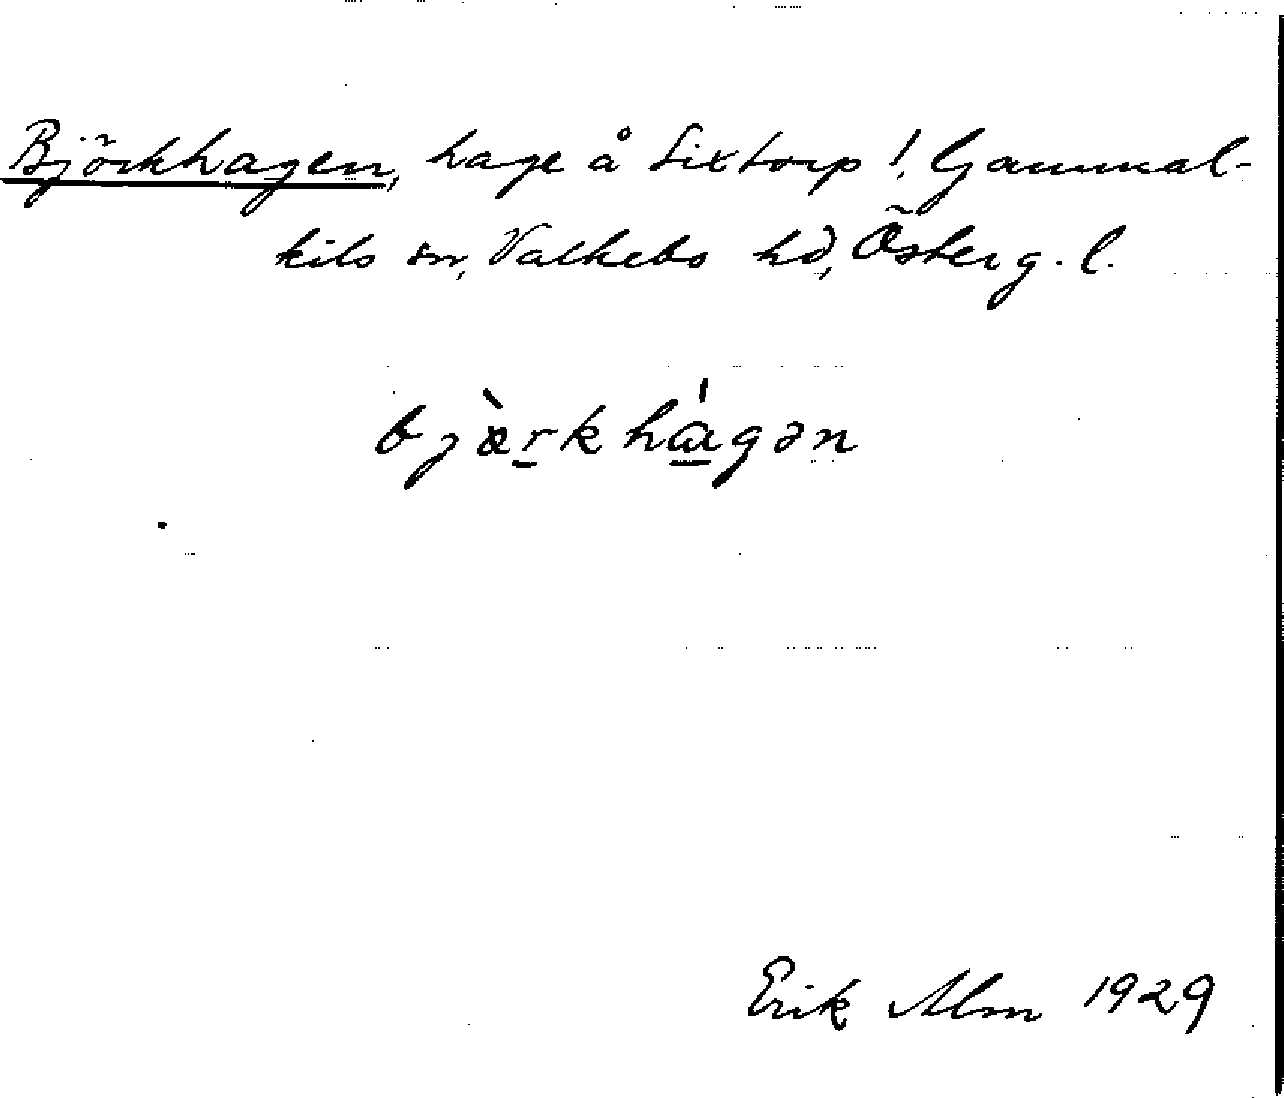 Björkhagen, hage å Sixtorp!, Gammal-
kils sn, Valkebo hd, Österg. l.
bjæ̀rkhágən
Erik Alm 1929